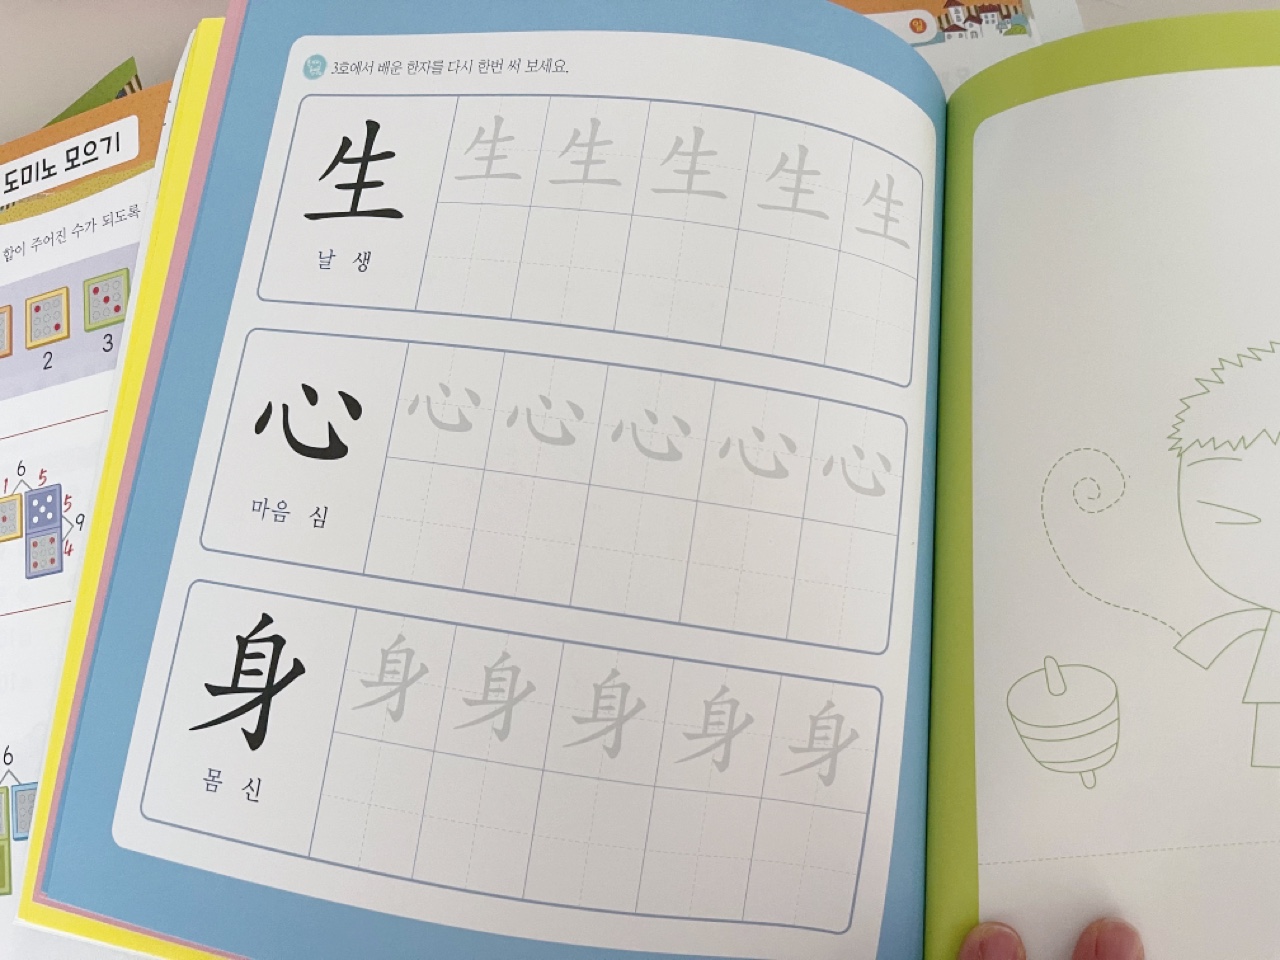 3호에서 배운 한자를 다시 한번 써 보세요.
生 生 生 生 生 生
날 생
心 心 心 心 心 心
마음 심
身 身 身 身 身 身
몸 신
도미노 모으기
합이 주어진 수가 되도록
2 3
6
1 5
5
9
4
6
일